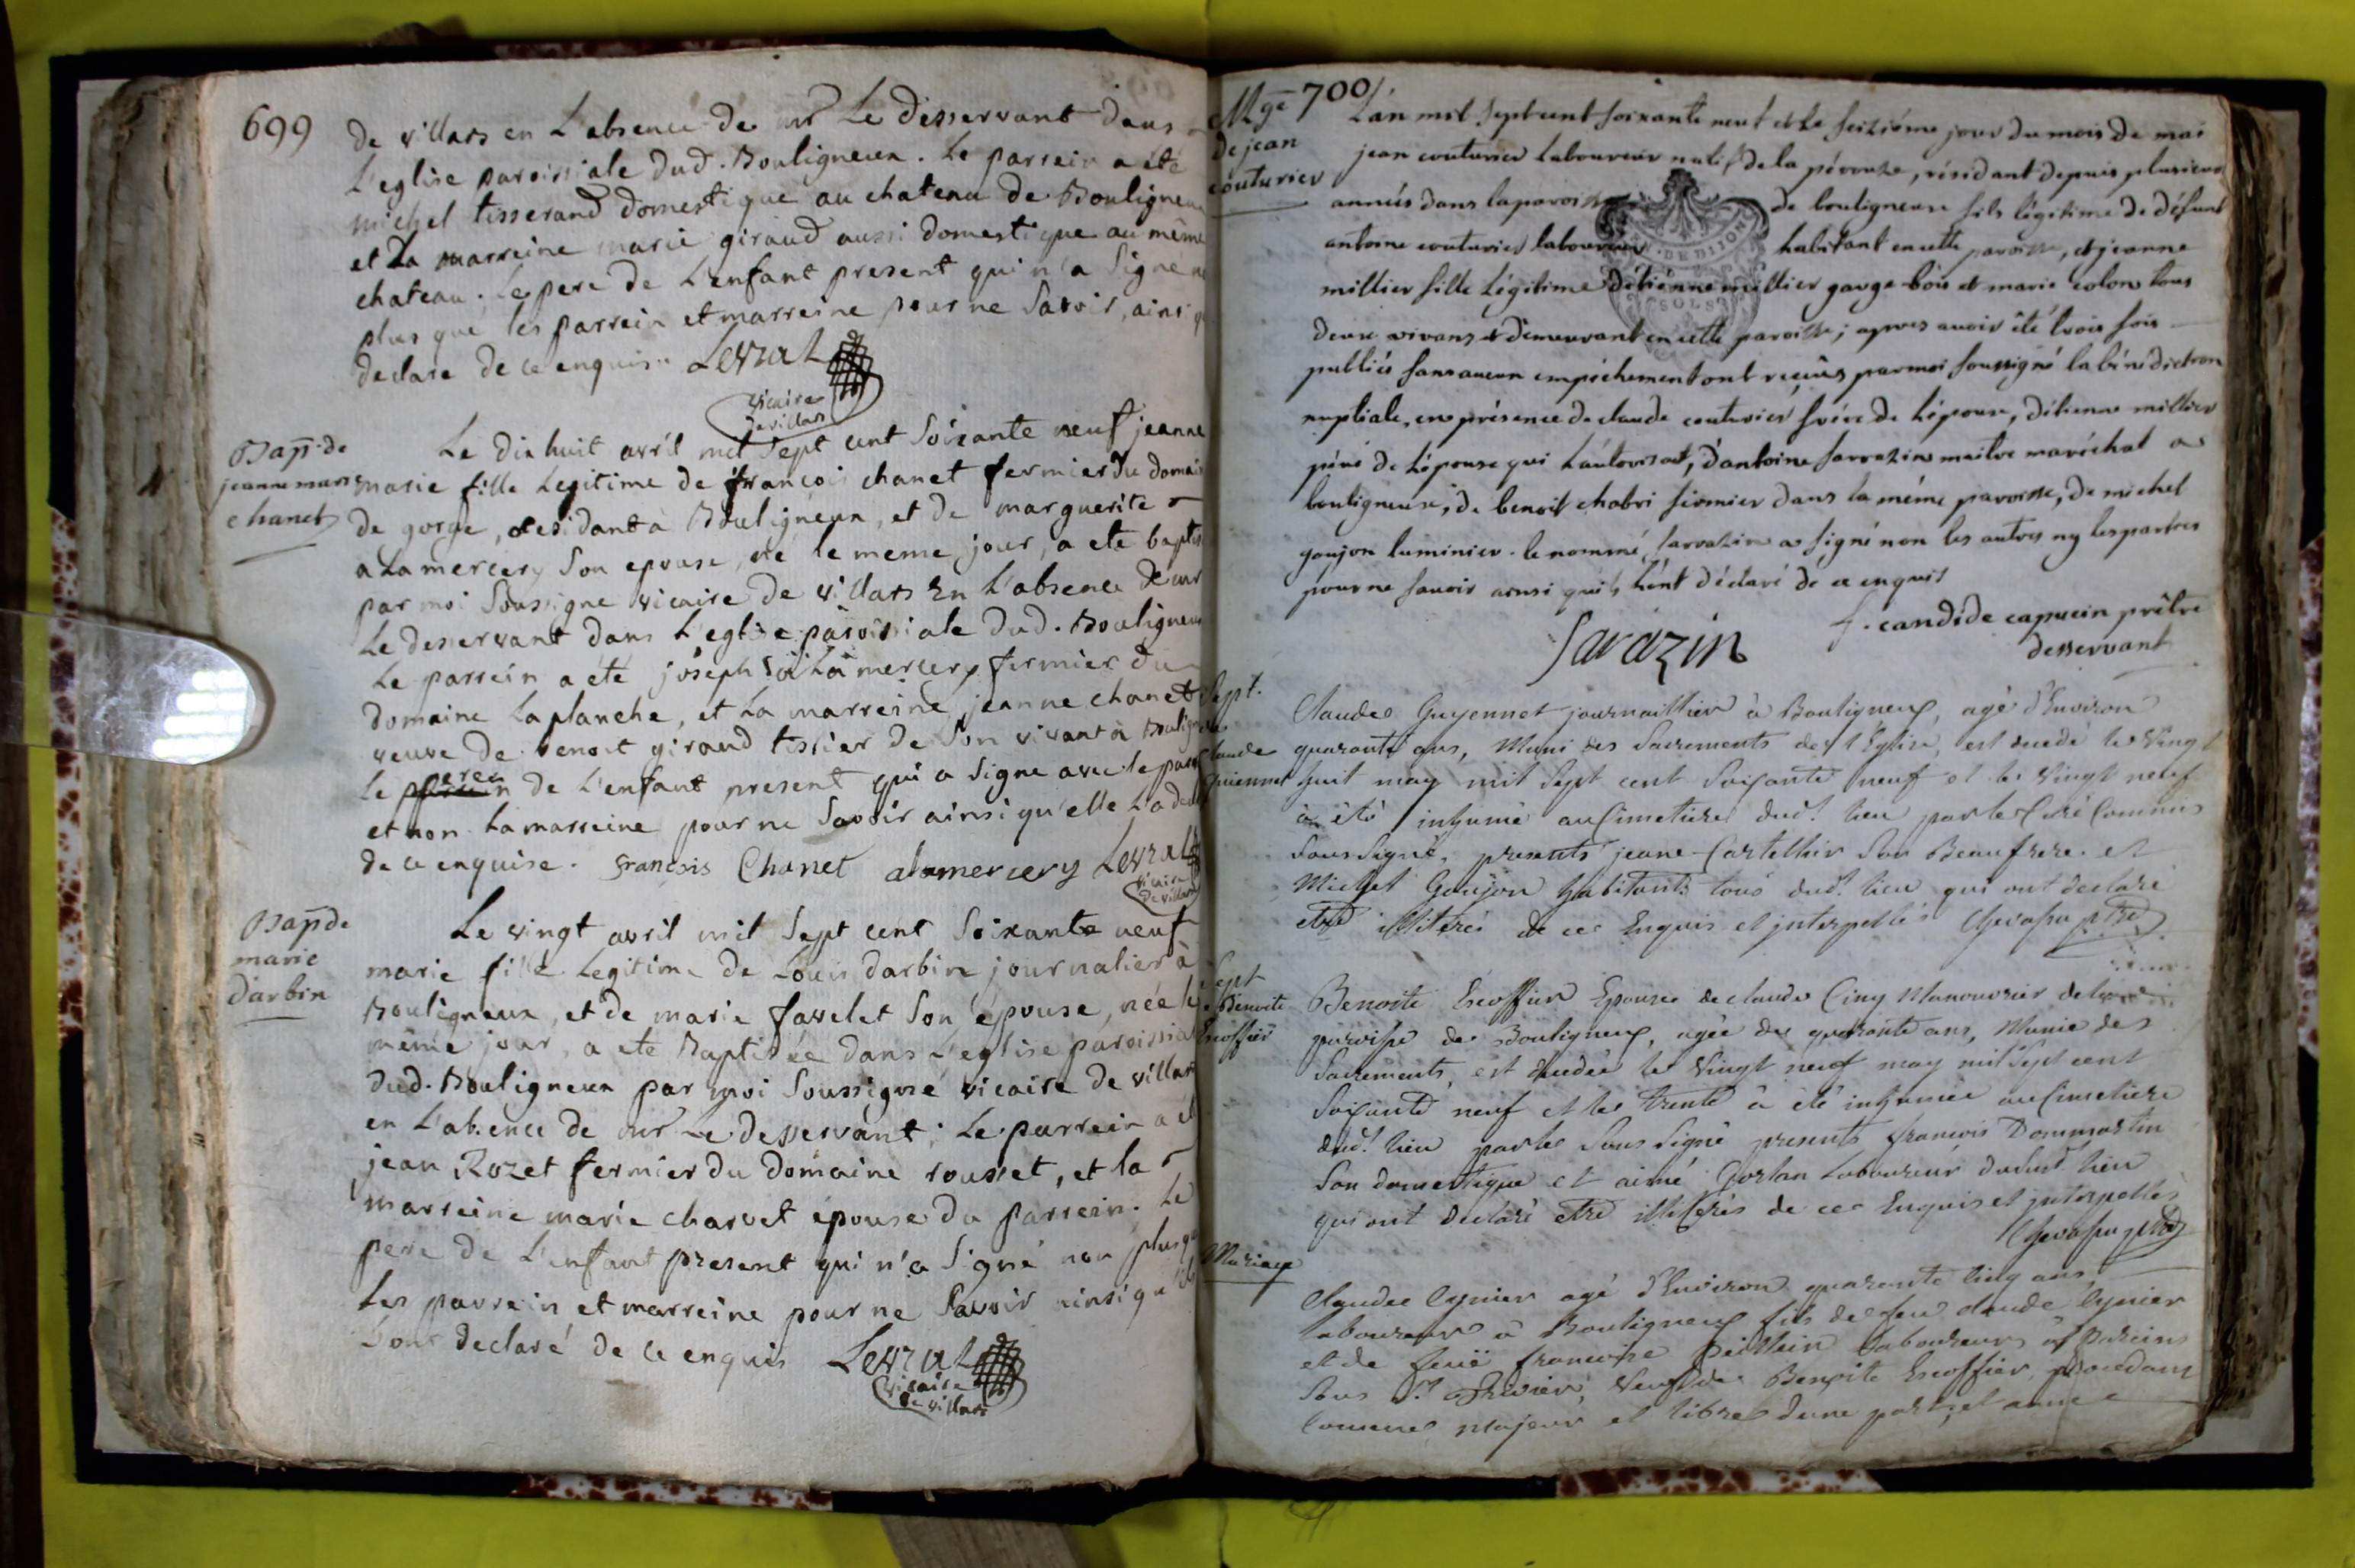 699
de villars en L'absence de mr Le desservant dans
L'eglise paroissiale dud. Bouligneux. Le parrein a été
michel tisserand domestique au chateau de Bouligneux
et La marreine marie giraud aussi domestique au même
chateau. Le pere de L'enfant present qui n'a Signé
plus que les parrein et marreine pour ne Savoir, ainsi
declare de ce enquis. Levrat
vicaire
de villars
Bap. de
jeanne marie
chanet
Le dix huit avril mil Sept cent Soixante neuf jeanne
marie fille Legitime de françois chanet fermier du domai
de gorge, residant à Bouligneux, et de marguerite
a La mercery Son epouse, né le meme jour, a ete baptis
par moi Soussigne vicaire de villars En L'absence de mr
Le desservant dans L'eglise paroissiale dud. Bouligneux
Le parrein a été joseph a La mercery fermier du
domaine Laplanche, et La marreine jeanne chanet
veuve de benoit giraud tissier de Son vivant à Boulign
Le pere de L'enfant present qui a Signe avec le par
et non La marreine pour ne Savoir ainsi qu'elle L'a de
de ce enquise. François Chanet alamercery Levrat
vicaire
de villars
Bap de
marie
darbin
Le vingt avril mil Sept cent Soixante neuf
marie fille Legitime de Louis darbin journalier à
Bouligneux, et de marie favelet Son épouse, née le
même jour, a ete Baptisée dans L'eglise paroissial
dud. Bouligneux par moi Soussigné vicaire de villars
en L'absence de mr Le desservant; Le parrein a ét
jean Rozet fermier du Domaine rousset, et la
marreine marie charvet épouse du parrein. Le
pere de L'enfant present qui n'a Signé non plus q
Les parrein et marreine pour ne Savoir ainsi qu'ils
L'ont declaré de ce enquis Levrat
vicaire
de villars
Mge 700
de jean
couturier
L'an mil sept cent soixante neuf et le seiziéme jour du mois de mai
jean couturier laboureur natif de la pérouze, résidant depuis plusieurs
années dans la paroisse de bouligneux fils légitime de défunt
antoine couturier laboureur habitant en cette paroisse, et jeanne
millier fille légitime d'étiénne millier garge bois et marie colon tous
deux vivans et demeurant en cette paroisse; apres avoir été trois fois
publiés sans aucun empéchement ont reçûs par moi soussigné la bénédiction
nuptiale, en présence de claude couturier frére de l'époux, d'étienne millier
pére de l'épouse qui l'autorisoit, d'antoine sarrazin maitre maréchal a
bouligneux, de benoit chabri fermier dans la méme paroisse, de michel
goujon luminier. le nommé sarrazin a signé non les autres ny les parties
pour ne savoir ainsi qu'ils l'ont déclaré de ce enquis
Sarazin
f. candide capucin prêtre
desservant
Sept.
Claude
Guiennet
Claude Guyennet journaillier à Bouligneux, agé d'Environ
quarante ans, Muni des Sacrements de l'Eglise, est decedé le Vingt
huit may mil Sept cent Soixante neuf et le Vingt neuf
à été inhumé au Cimetiere dud.t lieu par le Curé Commis
Soussigné, presents jeane Cartellier Son Beaufrere et
Michel Goujon habitants tous dud.t lieu qui ont declaré
etre illiterés de ce Enquis et interpellés
Sept
Benoite
Escoffier
Benoite Escoffier Epouse de claude Ciny Manouvrier de la
paroisse de Bouligneux, agée de quarante ans, Munie des
Sacrements, est decedée le Vingt neuf may mil Sept cent
Soixante neuf et le trente à été inhumée au Cimetiere
dud.t lieu par le Sous Signé presents françois Dommartin
Son domestique et aimé Gorlan Laboureur dudit lieu
qui ont declaré etre illiterés de ce Enquis et interpellés
Mariage
Claude Cynier agé d'Environ quarante cinq ans
laboureur à Bouligneux fils de feu claude Cynier
et de feuë françoise laboureurs à
Sous S.t veuf de Benoite Escoffier procedant
Comme majeur et libre d'une part, et anne